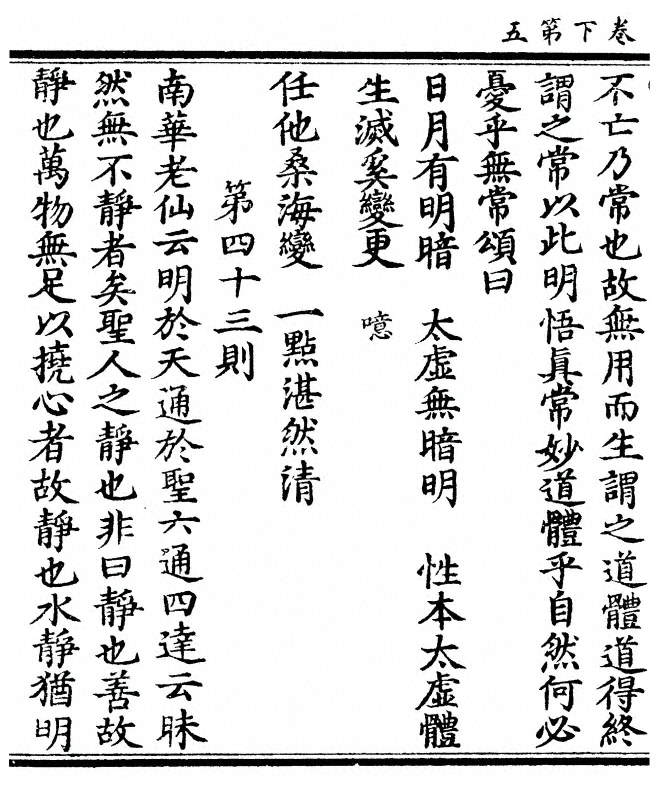 卷下第五
不亡乃常也故無用而生謂之道體道得終
謂之常以此明悟眞常妙道體乎自然何必
憂乎無常頌曰
日月有明暗　太虛無暗明　性本太虛體
生滅奚變更　噫
任他桑海變　一點湛然清
第四十三則
南華老仙云明於天通於聖六通四達云昧
然無不靜者矣聖人之靜也非曰靜也善故
靜也萬物無足以撓心者故靜也水靜猶明